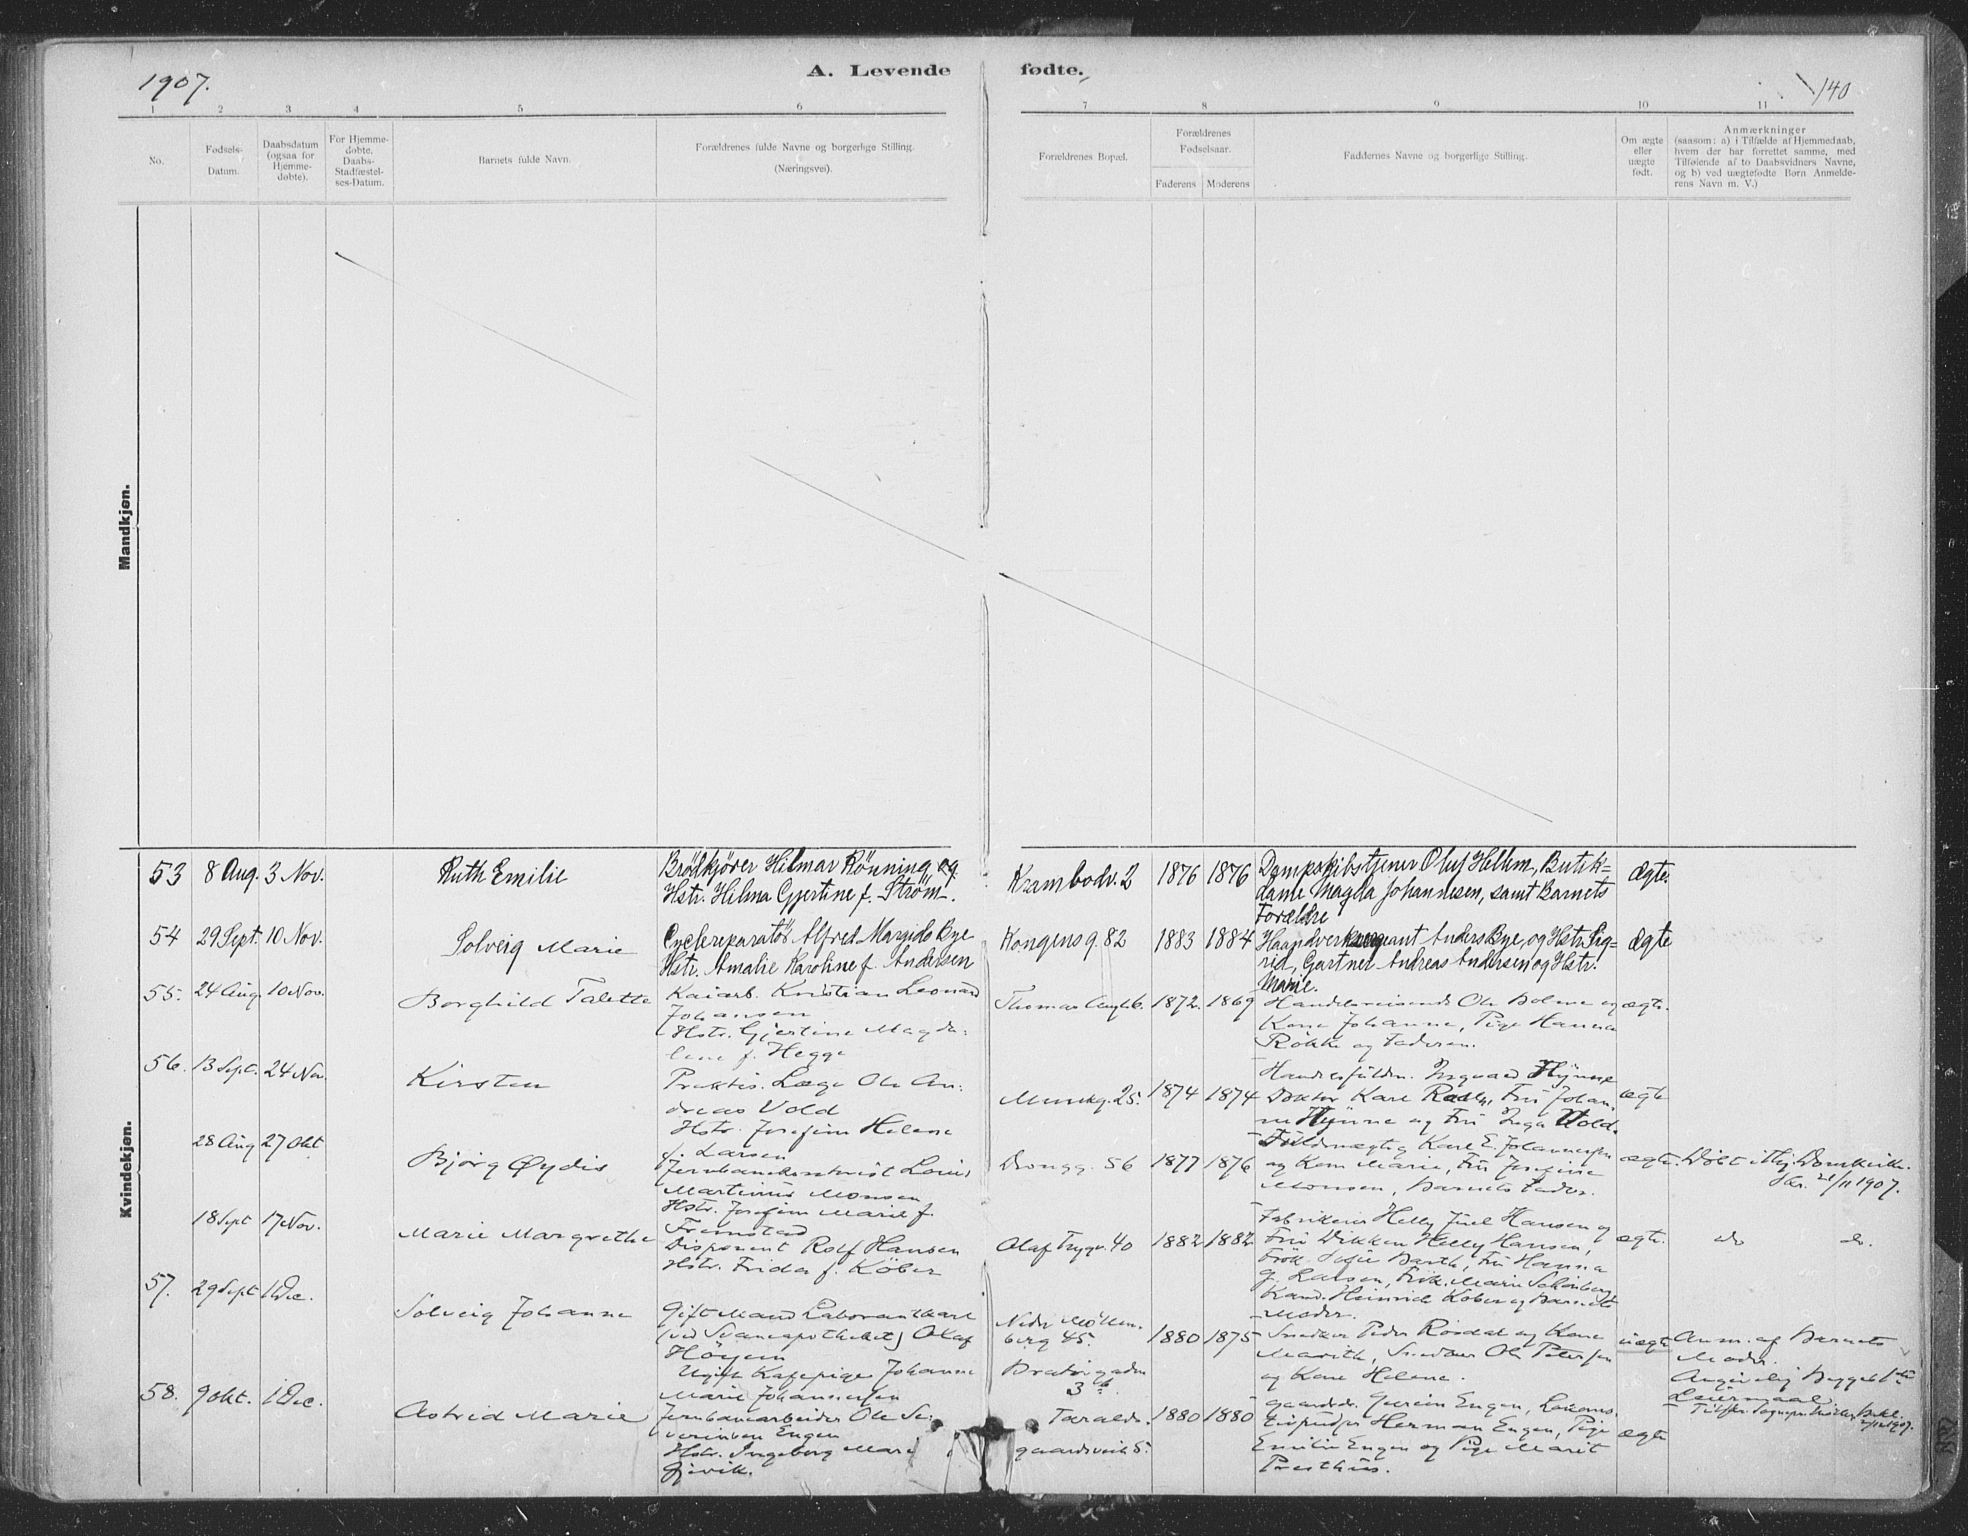 1907.
A. Levende fødte.
140
1 2 3 4 5 6 7 8 9 10 11
No.
Fødsels-
Datum.
Daabsdatum
(ogsaa for
Hjemme-
døbte).
For Hjemme-
døbte.
Daabs-
Stadfæstel-
ses-Datum.
Barnets fulde Navn.
Forældrenes fulde Navne og borgerlige Stilling.
(Næringsvei).
Forældrenes Bopæl.
Forældrenes
Fødselsaar.
Faderens Moderens
Faddernes Navne og borgerlige Stilling.
Om ægte
eller
uægte
født.
Anmærkninger
(saasom: a) i Tilfælde af Hjemmedaab,
hvem der har forrettet samme, med
Tilføiende af to Daabsvidners Navne,
og b) ved uægtefødte Børn Anmelde-
rens Navn m. V.)
Mandkjøn.
Kvindekjøn.
53 8 Aug. 3 Nov. Ruth Emilie
Brödkjörer Hilmar Rönning og
Hstr. Hilma Gjertine f. Ström.
Krambodv. 2 1876 1876
Dampskibstjener Oluf Hellem, Butik=
dame Magda Johannesen, samt Barnets
Forældre
Ægte.
54 29 Sept. 10 Nov. Solveig Marie
Cyclereparatör Alfred Margido Bye
Hstr. Amalie Karoline f. Andersen
Kongens g. 82 1883 1884
Haandverksergeant Anders Bye, og Hstr. Sig=
rid, Gartner Andreas Andersen og Hstr.
Marie.
Ægte
55. 24 Aug. 10 Nov. Borghild Talette
Kaiarb. Kristian Leonard
Johansen
Hstr. Gjertine Magda-
lene f. Hegge
Thomas 1872. 1869
Handelsreisende Ole Bolme og
Kone Johanne, Pige Hanna
Røkke og Faderen.
ægte.
56. 13 Sept. 24 Nov. Kirsten
Praktis. Læge Ole An-
dreas Vold
Hstr. Josefine Helene
f. Larsen
Munkg. 25. 1874 1874
Handelsfuldm. Ingvald Hynne
Doktor Karl Fru Johan-
ne Hynne og Fru Inga Vold.
ægte
28 Aug 27 Okt Bjørg Øydis
Jernbanekontorist Louis
Martinius Monsen
Hstr. Josefine Marie f.
Fremstad
Drongg. 56 1877 1876
Fuldmægtig Karl E. Johannesen
og Kone Marie, Fru Josefine
Monsen, Barnets Fader.
ægte. Døbt i Domkirke.
21/11 1907.
18 Sept 17 Nov. Marie Margrethe
Disponent Rolf Hansen
Hstr. Frida f. Köber
Olaf Trygv. 40 1882 1882
Fabrikeier Helly Juel Hansen og
Fru Dikken Helly Hansen,
Frök. Sofie Barth, Fru Hanna
G. Larsen, Frök. Marie Schönberg
Kand. Heinrich Köber og Barnets
Moder.
ægte. do do.
57. 29 Sept 1 Dec. Solveig Johanne
Gift Mand Laborant
(ved Svaneapotheket) Olaf
Höyem
Ugift Kafepige Johanne
Marie Johannesen
Nedr Möllen-
berg 45.
Bratörgaden
3 b 1880 1875
Snedker Peder Rosdal og Kone
Marith, Snedker Ole Petersen
og Kone Helene.
uægte Anm. af Barnets
Moder.
Angivelig Begges 1ste
Leiermaal
58. 9 Okt. 1 Dec. Astrid Marie
Jernbanearbeider Ole Se-
verinsen Engen
Hstr. Ingeborg Marie
Gjevik.
Taralds-
gaardsveit 5. 1880 1880
Gaardbr. Engen, Lokomo-
tivpudser Herman Engen, Pige
Emilie Engen og Pige Marit
Presthus.
ægte